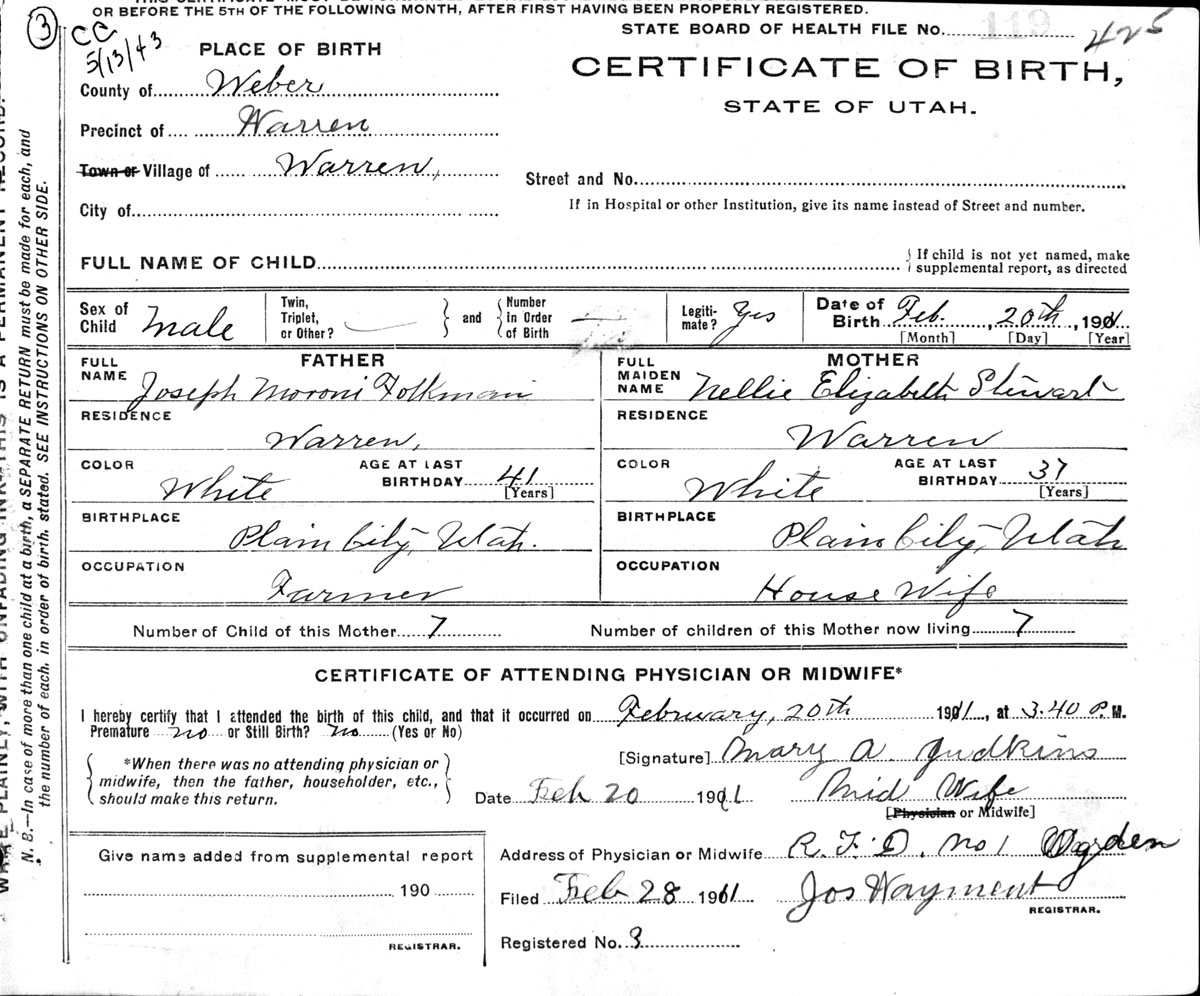 OR BEFORE THE 5TH OF THE FOLLOWING MONTH, AFTER FIRST HAVING BEEN PROPERLY REGISTERED.
3 CC
5/13/43
STATE BOARD OF HEALTH FILE No. 119 425
PLACE OF BIRTH
CERTIFICATE OF BIRTH,
STATE OF UTAH.
County of Weber
Precinct of Warren
Town or Village of Warren,
Street and No.
City of
If in Hospital or other Institution, give its name instead of Street and number.
FULL NAME OF CHILD
{ If child is not yet named, make
supplemental report, as directed
Sex of Child Male
Twin, Triplet, or Other? — } and { Number in Order of Birth —
Legiti-mate? Yes
Date of Birth Feb. , 20th , 1911
[Month] [Day] [Year]
FATHER
FULL NAME Joseph Moroni Folkman
RESIDENCE
Warren,
COLOR White
AGE AT LAST BIRTHDAY 41
[Years]
BIRTHPLACE
Plain City, Utah.
OCCUPATION
Farmer
MOTHER
FULL MAIDEN NAME Nellie Elizabeth Stewart
RESIDENCE
Warren
COLOR White
AGE AT LAST BIRTHDAY 37
[Years]
BIRTHPLACE
Plain City, Utah
OCCUPATION
House Wife
Number of Child of this Mother 7 Number of children of this Mother now living 7
CERTIFICATE OF ATTENDING PHYSICIAN OR MIDWIFE*
I hereby certify that I attended the birth of this child, and that it occurred on February, 20th 1911, at 3.40 P. M.
Premature no or Still Birth? no (Yes or No)
{ *When there was no attending physician or
midwife, then the father, householder, etc.,
should make this return. }
[Signature] Mary A. Judkins
Date Feb 20 1911 Mid Wife
[Physician or Midwife]
Give name added from supplemental report
190
REGISTRAR.
Address of Physician or Midwife R. F. D. No 1 Ogden
Filed Feb 28 1911 Jos Wayment
REGISTRAR.
Registered No. 3
N. B.—In case of more than one child at a birth, a SEPARATE RETURN must be made for each, and
the number of each, in order of birth, stated. SEE INSTRUCTIONS ON OTHER SIDE.